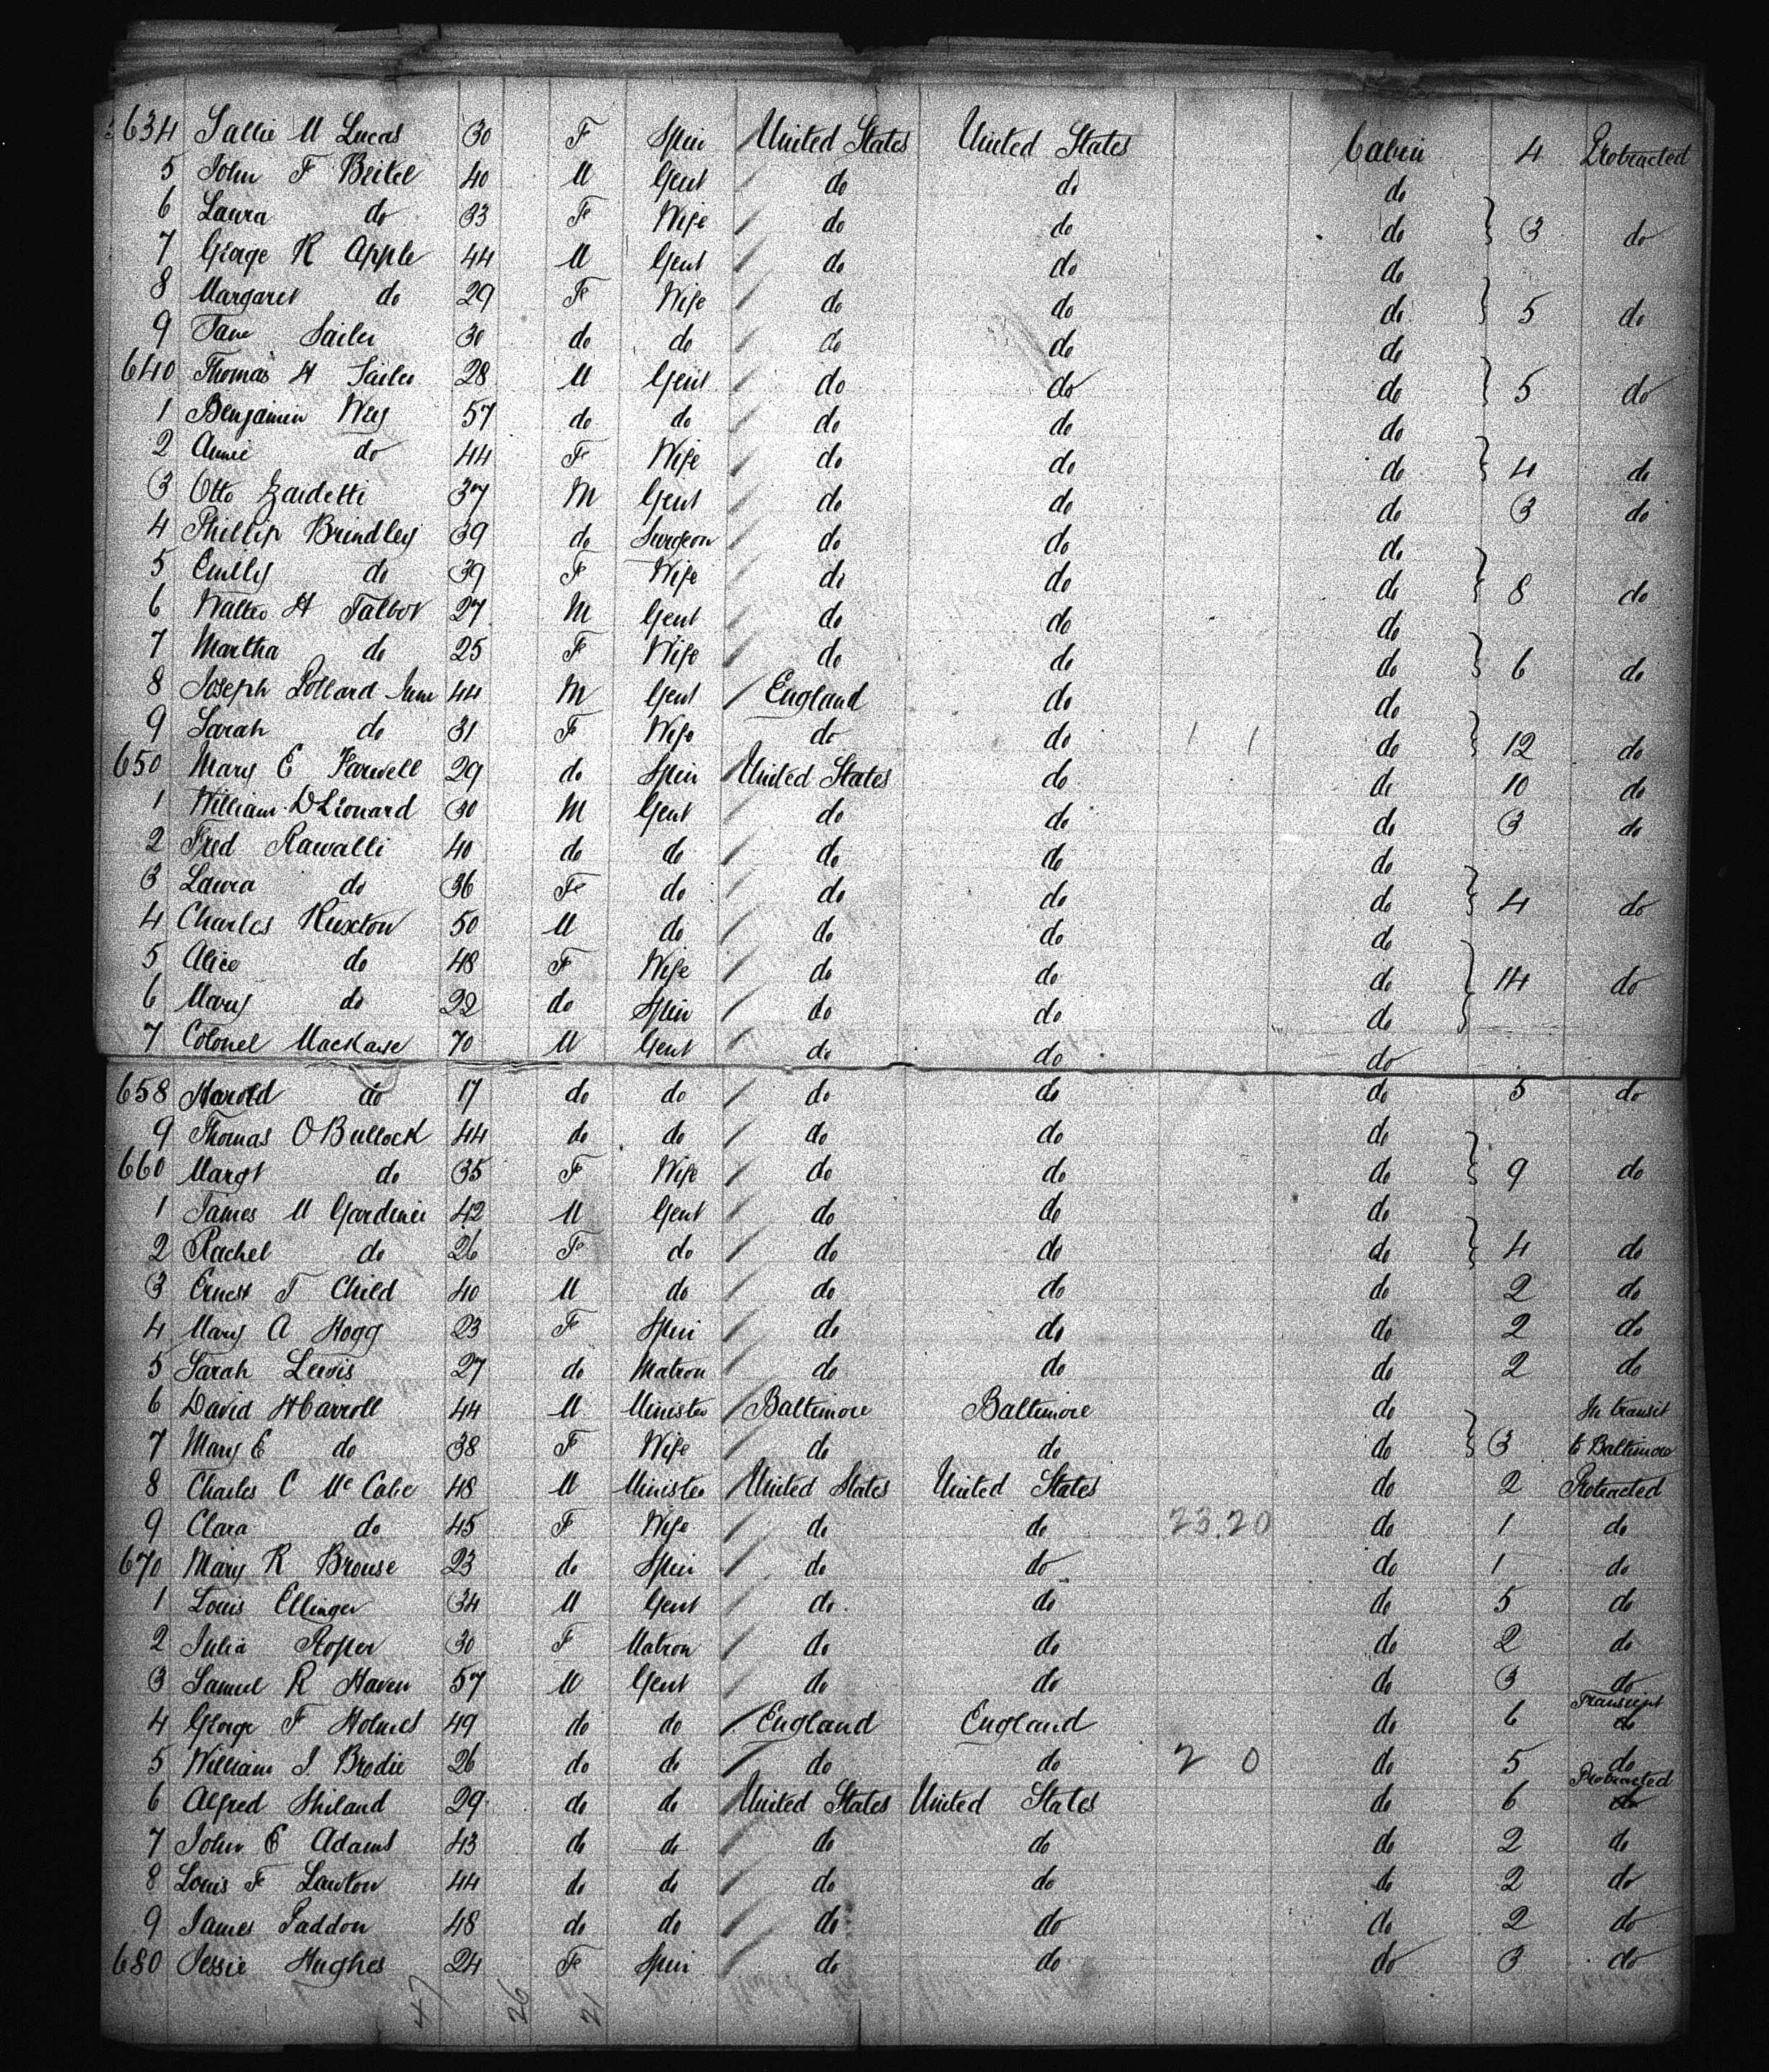 634 Sallie M Lucas 30 F Spin United States United States Cabin 4 Protracted
5 John F Beitel 40 M Gent do do do
6 Laura do 33 F Wife do do do 3 do
7 George R Apple 44 M Gent do do do
8 Margaret do 29 F Wife do do do 5 do
9 Jane Sailer 30 do do do do do
640 Thomas H Sailer 28 M Gent do do do 5 do
1 Benjamin 57 do do do do do
2 Annie do 44 F Wife do do do 4 do
3 Otto Zardetti 37 M Gent do do do 3 do
4 Phillip Brindley 39 do Surgeon do do do
5 Emilly do 39 F Wife do do do 8 do
6 Walter H Talbot 27 M Gent do do do
7 Martha do 25 F Wife do do do 6 do
8 Joseph Pollard Junr 44 M Gent England do do
9 Sarah do 31 F Wife do do 1 1 do 12 do
650 Mary E Farwell 29 do Spin United States do do 10 do
1 William D Leonard 30 M Gent do do do 3 do
2 Fred Rawalli 40 do do do do do
3 Laura do 36 F do do do do 4 do
4 Charles Ruxton 50 M do do do do
5 Alice do 48 F Wife do do do 14 do
6 Mary do 22 do Spin do do do
7 Colonel 70 M Gent do do do
658 Harold do 17 do do do do do 5 do
9 Thomas O Bullock 44 do do do do do
660 Margt do 35 F Wife do do do 9 do
1 James M Gardiner 42 M Gent do do do
2 Rachel do 26 F do do do do 4 do
3 Ernest T Child 40 M do do do do 2 do
4 Mary A Hogg 23 F Spin do do do 2 do
5 Sarah Lewis 27 do Matron do do do 2 do
6 David H Carroll 44 M Minister Baltimore Baltimore do In transit
7 Mary E do 38 F Wife do do do 3 to Baltimore
8 Charles C McCabe 48 M Minister United States United States do 2 Protracted
9 Clara do 45 F Wife do do 23.20 do 1 do
670 Mary R Brouse 23 do Spin do do do 1 do
1 Louis Ellinger 34 M Gent do do do 5 do
2 Julia Roper 30 F Matron do do do 2 do
3 Samuel R Haven 57 M Gent do do do 3 do
4 George F Holmes 49 do do England England do 6 Transient do
5 William J Brodie 26 do do do do 2 0 do 5 do
6 Alfred Shiland 29 do do United States United States do 6 Protracted do
7 John E Adams 43 do do do do do 2 do
8 Louis F Lawton 44 do do do do do 2 do
9 James Paddon 48 do do do do do 2 do
680 Jessie Hughes 24 F Spin do do do 3 do
47 26 21